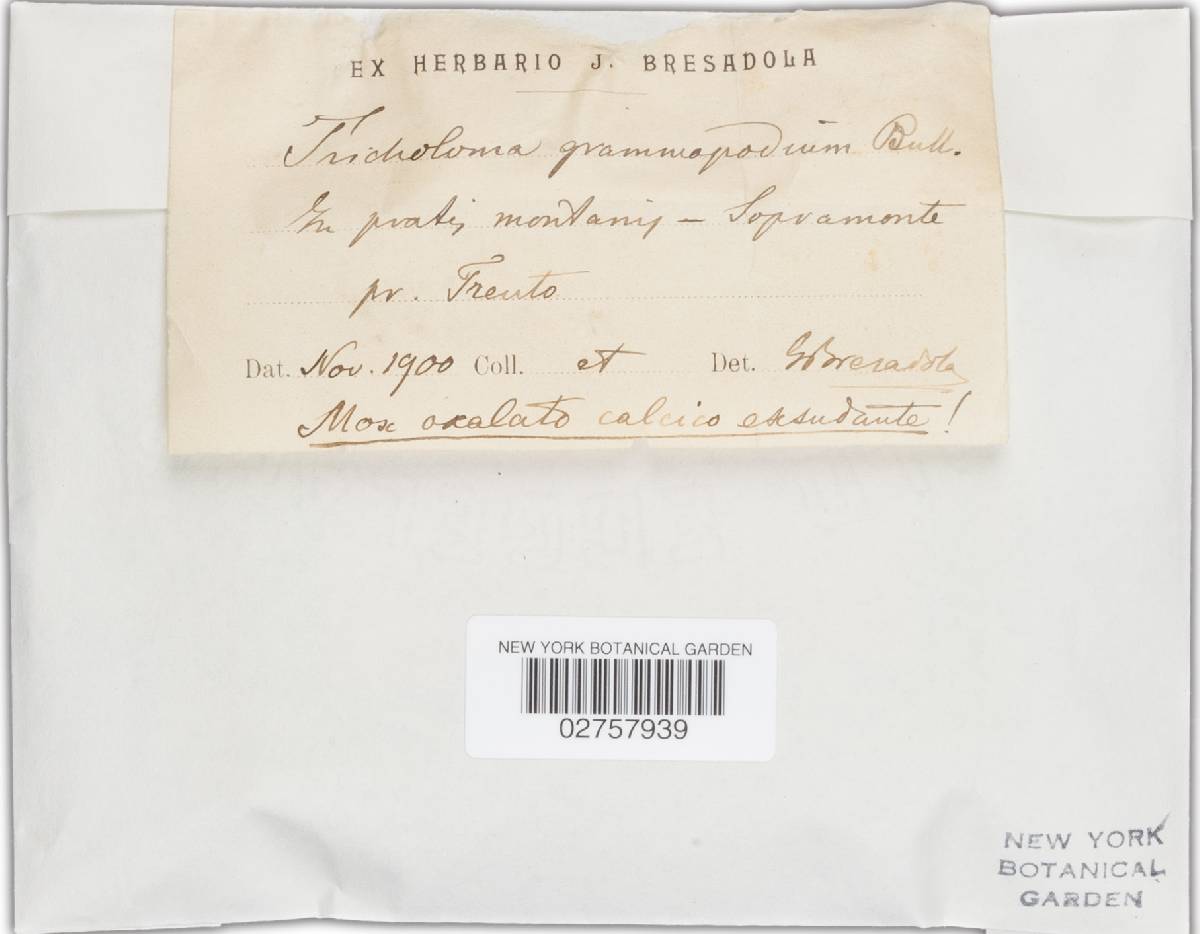 EX HERBARIO J. BRESADOLA
Tricholoma grammopodium Bull.
In pratis montanis – Sopramonte
pr. Trento
Dat. Nov. 1900 Coll. et Det. GBresadola
Mox oxalato calcico exsudante!
NEW YORK BOTANICAL GARDEN
02757939
NEW YORK
BOTANICAL
GARDEN